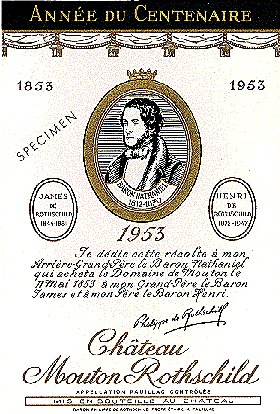 ANNÉE DU CENTENAIRE
1853 1953
SPECIMEN
BARON NATHANIEL
1812-1870
JAMES
DE
ROTHSCHILD
1844-1881
HENRI
DE
ROTHSCHILD
1872-1947
1953
Je dédie cette récolte à mon
Arrière-Grand-Père le Baron Nathaniel
qui acheta le Domaine de Mouton le
11 Mai 1853 à mon Grand-Père le Baron
James et à mon Père le Baron Henri.
Philippe de Rothschild
Château
Mouton Rothschild
APPELLATION PAUILLAC CONTRÔLÉE
MIS EN BOUTEILLE AU CHÂTEAU
BARON PHILIPPE DE ROTHSCHILD PROPRIÉTAIRE A PAUILLAC